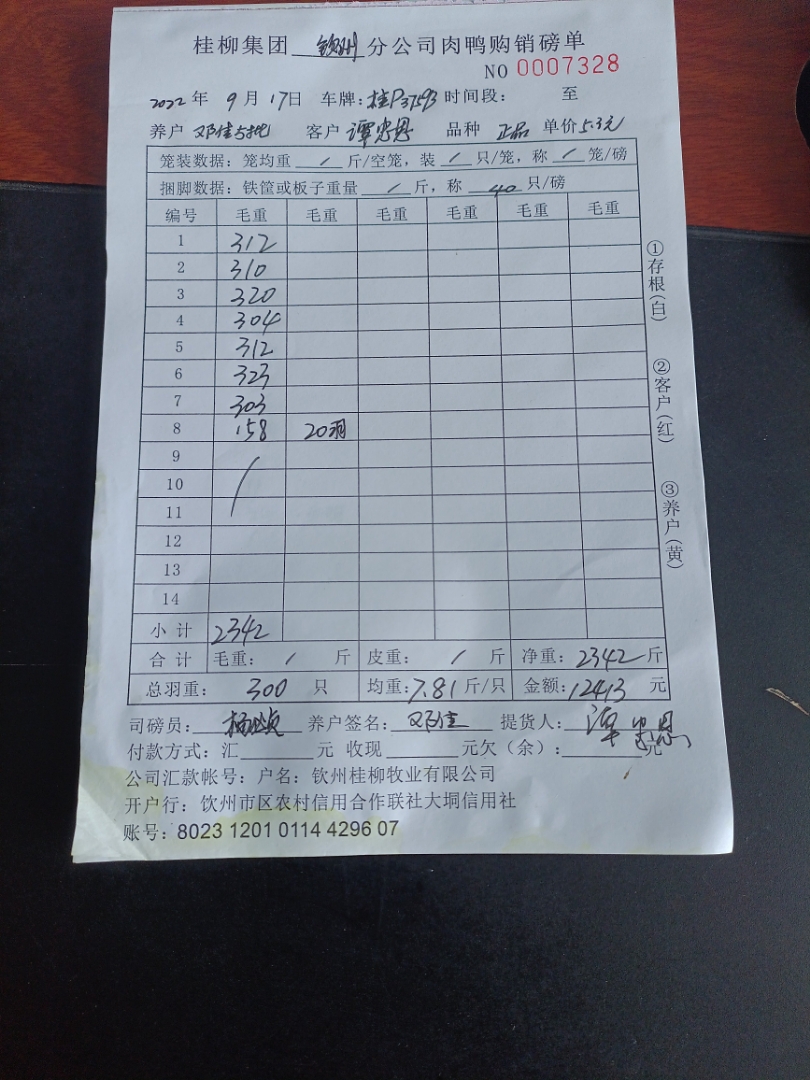 桂柳集团 钦州 分公司肉鸭购销磅单
NO 0007328
2022 年 9 月 17日 车牌:桂P37593 时间段: 至
养户 邓佳 客户 谭忠恩 品种 正品 单价 5.3元
笼装数据: 笼均重 / 斤/空笼, 装 / 只/笼, 称 / 笼/磅
捆脚数据: 铁筐或板子重量 / 斤, 称 40 只/磅
编号 毛重 毛重 毛重 毛重 毛重 毛重
1 312
2 310
3 320
4 304
5 312
6 323
7 303
8 158 20羽
9
10
11
12
13
14
小 计 2342
合 计 毛重: / 斤 皮重: / 斤 净重: 2342 斤
总羽重: 300 只 均重: 7.81 斤/只 金额: 12413 元
①存根(白) ②客户(红) ③养户(黄)
司磅员: 养户签名: 邓佳 提货人: 谭忠恩
付款方式: 汇 元 收现 元欠(余): 元
公司汇款帐号: 户名: 钦州桂柳牧业有限公司
开户行: 钦州市区农村信用合作联社大垌信用社
账号: 8023 1201 0114 4296 07